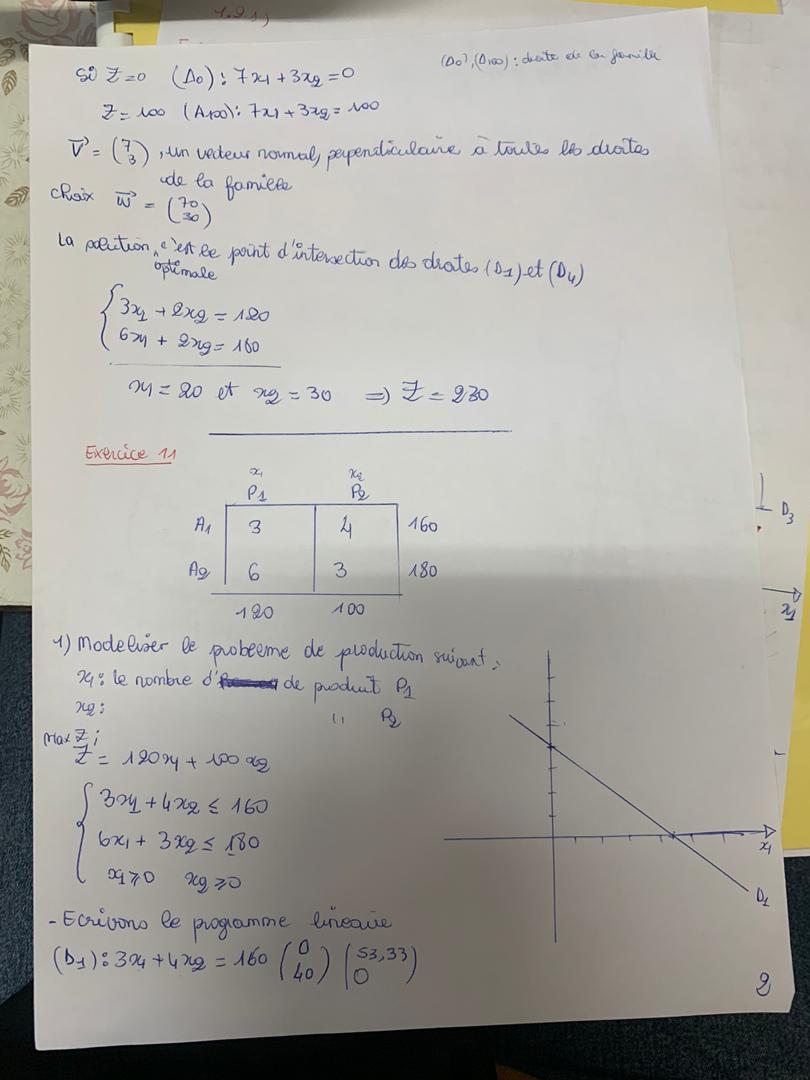 Si Z=0 (Δ0): 7x1+3x2=0
(Δ0),(Δ100): droite de la famille
Z=100 (Δ100): 7x1+3x2=100
V⃗ = (7 3), un vecteur normal, perpendiculaire à toutes les droites
de la famille
choix w⃗ = (70 30)
La solution, c'est le point d'intersection des droites (D1) et (D4)
optimale
3x1 + 2x2 = 120
6x1 + 2x2 = 160
x1 = 20 et x2 = 30 => Z = 230
Exercice 11
x1 x2
P1 P2
A1 3 4 160
A2 6 3 180
120 100
1) Modeliser le probleme de production suivant:
x1: le nombre d' de produit P1
x2: '' P2
Max Z;
Z = 120x1 + 100x2
3x1 + 4x2 ≤ 160
6x1 + 3x2 ≤ 180
x1≥0 x2≥0
- Ecrivons le programme lineaire
(D1): 3x1+4x2 = 160 (0 40) (53,33 0)
x1
D1
2
D3
x1